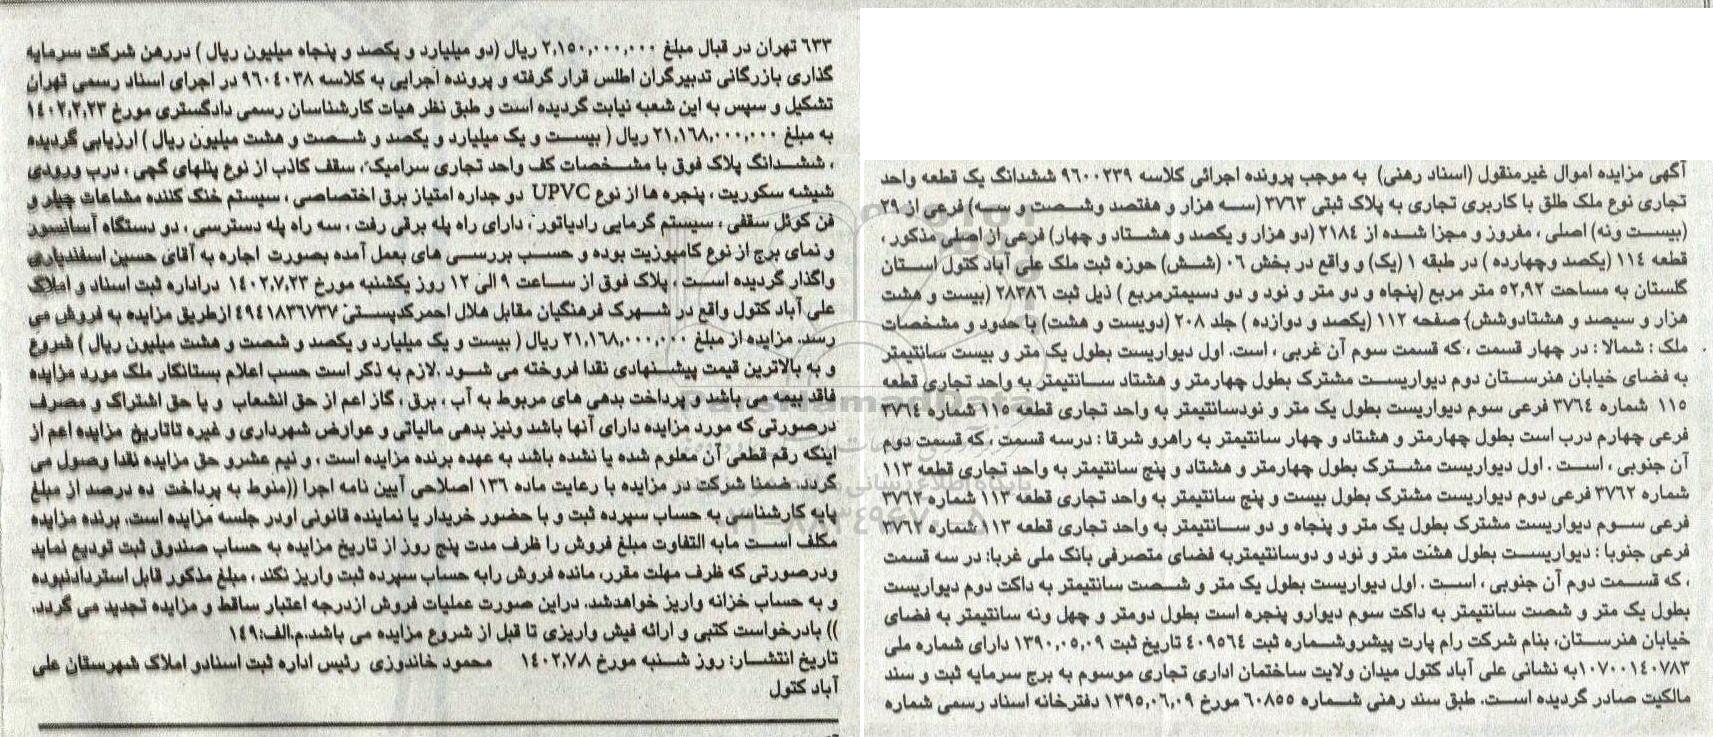 آگهی مزایده اموال غیرمنقول (اسناد رهنی) به موجب پرونده اجرائی کلاسه ۹۶۰۰۲۳۹ ششدانگ یک قطعه واحد
تجاری نوع ملک طلق با کاربری تجاری به پلاک ثبتی ۳۷۶۳ (سه هزار و هفتصد وشصت و سه) فرعی از ۲۹
(بیست ونه) اصلی ، مفروز و مجزا شده از ۲۱۸۴ (دو هزار و یکصد و هشتاد و چهار) فرعی از اصلی مذکور ،
قطعه ۱۱٤ (یکصد وچهارده ) در طبقه ۱ (یک) و واقع در بخش ۰۶ (شش) حوزه ثبت ملک علی آباد کتول استان
گلستان به مساحت ۵۲,۹۲ متر مربع (پنجاه و دو متر و نود و دو دسیمترمربع ) ذیل ثبت ۲۸۳۸۶ (بیست و هشت
هزار و سیصد و هشتادوشش) صفحه ۱۱۲ (یکصد و دوازده ) جلد ۲۰۸ (دویست و هشت) با حدود و مشخصات
ملک : شمالا : در چهار قسمت ، که قسمت سوم آن غربی ، است. اول دیواریست بطول یک متر و بیست سانتیمتر
به فضای خیابان هنرستان دوم دیواریست مشترک بطول چهارمتر و هشتاد سانتیمتر به واحد تجاری قطعه
۱۱۵ شماره ۳۷۶٤ فرعی سوم دیواریست بطول یک متر و نودسانتیمتر به واحد تجاری قطعه ۱۱۵ شماره ۳۷۶٤
فرعی چهارم درب است بطول چهارمتر و هشتاد و چهار سانتیمتر به راهرو شرقا : درسه قسمت ، که قسمت دوم
آن جنوبی ، است . اول دیواریست مشترک بطول چهارمتر و هشتاد و پنج سانتیمتر به واحد تجاری قطعه ۱۱۳
شماره ۳۷۶۲ فرعی دوم دیواریست مشترک بطول بیست و پنج سانتیمتر به واحد تجاری قطعه ۱۱۳ شماره ۳۷۶۲
فرعی سوم دیواریست مشترک بطول یک متر و پنجاه و دو سانتیمتر به واحد تجاری قطعه ۱۱۳ شماره ۳۷۶۲
فرعی جنوبا : دیواریست بطول هشت متر و نود و دوسانتیمتربه فضای متصرفی بانک ملی غربا: در سه قسمت
، که قسمت دوم آن جنوبی ، است . اول دیواریست بطول یک متر و شصت سانتیمتر به داکت دوم دیواریست
بطول یک متر و شصت سانتیمتر به داکت سوم دیوارو پنجره است بطول دومتر و چهل ونه سانتیمتر به فضای
خیابان هنرستان، بنام شرکت رام پارت پیشروشماره ثبت ٤۰۹۵۶٤ تاریخ ثبت ۱۳۹۰,۰۵,۰۹ دارای شماره ملی
۱۰۷۰۰۱٤۰۷۸۳به نشانی علی آباد کتول میدان ولایت ساختمان اداری تجاری موسوم به برج سرمایه ثبت و سند
مالکیت صادر گردیده است. طبق سند رهنی شماره ۶۰۸۵۵ مورخ ۱۳۹۵,۰۶,۰۹ دفترخانه اسناد رسمی شماره
۶۳۳ تهران در قبال مبلغ ۲,۱۵۰,۰۰۰,۰۰۰ ریال (دو میلیارد و یکصد و پنجاه میلیون ریال ) دررهن شرکت سرمایه
گذاری بازرگانی تدبیرگران اطلس قرار گرفته و پرونده اجرایی به کلاسه ۹۶۰٤۰۳۸ در اجرای اسناد رسمی تهران
تشکیل و سپس به این شعبه نیابت گردیده است و طبق نظر هیات کارشناسان رسمی دادگستری مورخ ۱٤۰۲,۲,۲۳
به مبلغ ۲۱,۱۶۸,۰۰۰,۰۰۰ ریال ( بیست و یک میلیارد و یکصد و شصت و هشت میلیون ریال ) ارزیابی گردیده
، ششدانگ پلاک فوق با مشخصات کف واحد تجاری سرامیک، سقف کاذب از نوع پنلهای گچی ، درب ورودی
شیشه سکوریت ، پنجره ها از نوع UPVC دو جداره امتیاز برق اختصاصی ، سیستم خنک کننده مشاعات چیلر و
فن کوئل سقفی ، سیستم گرمایی رادیاتور ، دارای راه پله برقی رفت ، سه راه پله دسترسی ، دو دستگاه آسانسور
و نمای برج از نوع کامپوزیت بوده و حسب بررسی های بعمل آمده بصورت اجاره به آقای حسین اسفندیاری
واگذار گردیده است ، پلاک فوق از ساعت ۹ الی ۱۲ روز یکشنبه مورخ ۱٤۰۲,۷,۲۳ دراداره ثبت اسناد و املاک
علی آباد کتول واقع در شهرک فرهنگیان مقابل هلال احمرکدپستی ٤۹٤۱۸۳۶۷۳۷ ازطریق مزایده به فروش می
رسد. مزایده از مبلغ ۲۱,۱۶۸,۰۰۰,۰۰۰ ریال ( بیست و یک میلیارد و یکصد و شصت و هشت میلیون ریال ) شروع
و به بالاترین قیمت پیشنهادی نقدا فروخته می شود .لازم به ذکر است حسب اعلام بستانکار ملک مورد مزایده
فاقد بیمه می باشد و پرداخت بدهی های مربوط به آب ، برق ، گاز اعم از حق انشعاب و یا حق اشتراک و مصرف
درصورتی که مورد مزایده دارای آنها باشد ونیز بدهی مالیاتی و عوارض شهرداری و غیره تاتاریخ مزایده اعم از
اینکه رقم قطعی آن معلوم شده یا نشده باشد به عهده برنده مزایده است ، و نیم عشرو حق مزایده نقدا وصول می
گردد. ضمنا شرکت در مزایده با رعایت ماده ۱۳۶ اصلاحی آیین نامه اجرا ((منوط به پرداخت ده درصد از مبلغ
پایه کارشناسی به حساب سپرده ثبت و با حضور خریدار یا نماینده قانونی اودر جلسه مزایده است. برنده مزایده
مکلف است مابه التفاوت مبلغ فروش را ظرف مدت پنج روز از تاریخ مزایده به حساب صندوق ثبت تودیع نماید
ودرصورتی که ظرف مهلت مقرر، مانده فروش رابه حساب سپرده ثبت واریز نکند ، مبلغ مذکور قابل استردادنبوده
و به حساب خزانه واریز خواهدشد. دراین صورت عملیات فروش ازدرجه اعتبار ساقط و مزایده تجدید می گردد.
)) بادرخواست کتبی و ارائه فیش واریزی تا قبل از شروع مزایده می باشد.م.الف:۱٤۹
تاریخ انتشار: روز شنبه مورخ ۱٤۰۲,۷,۸ محمود خاندوزی رئیس اداره ثبت اسنادو املاک شهرستان علی
آباد کتول